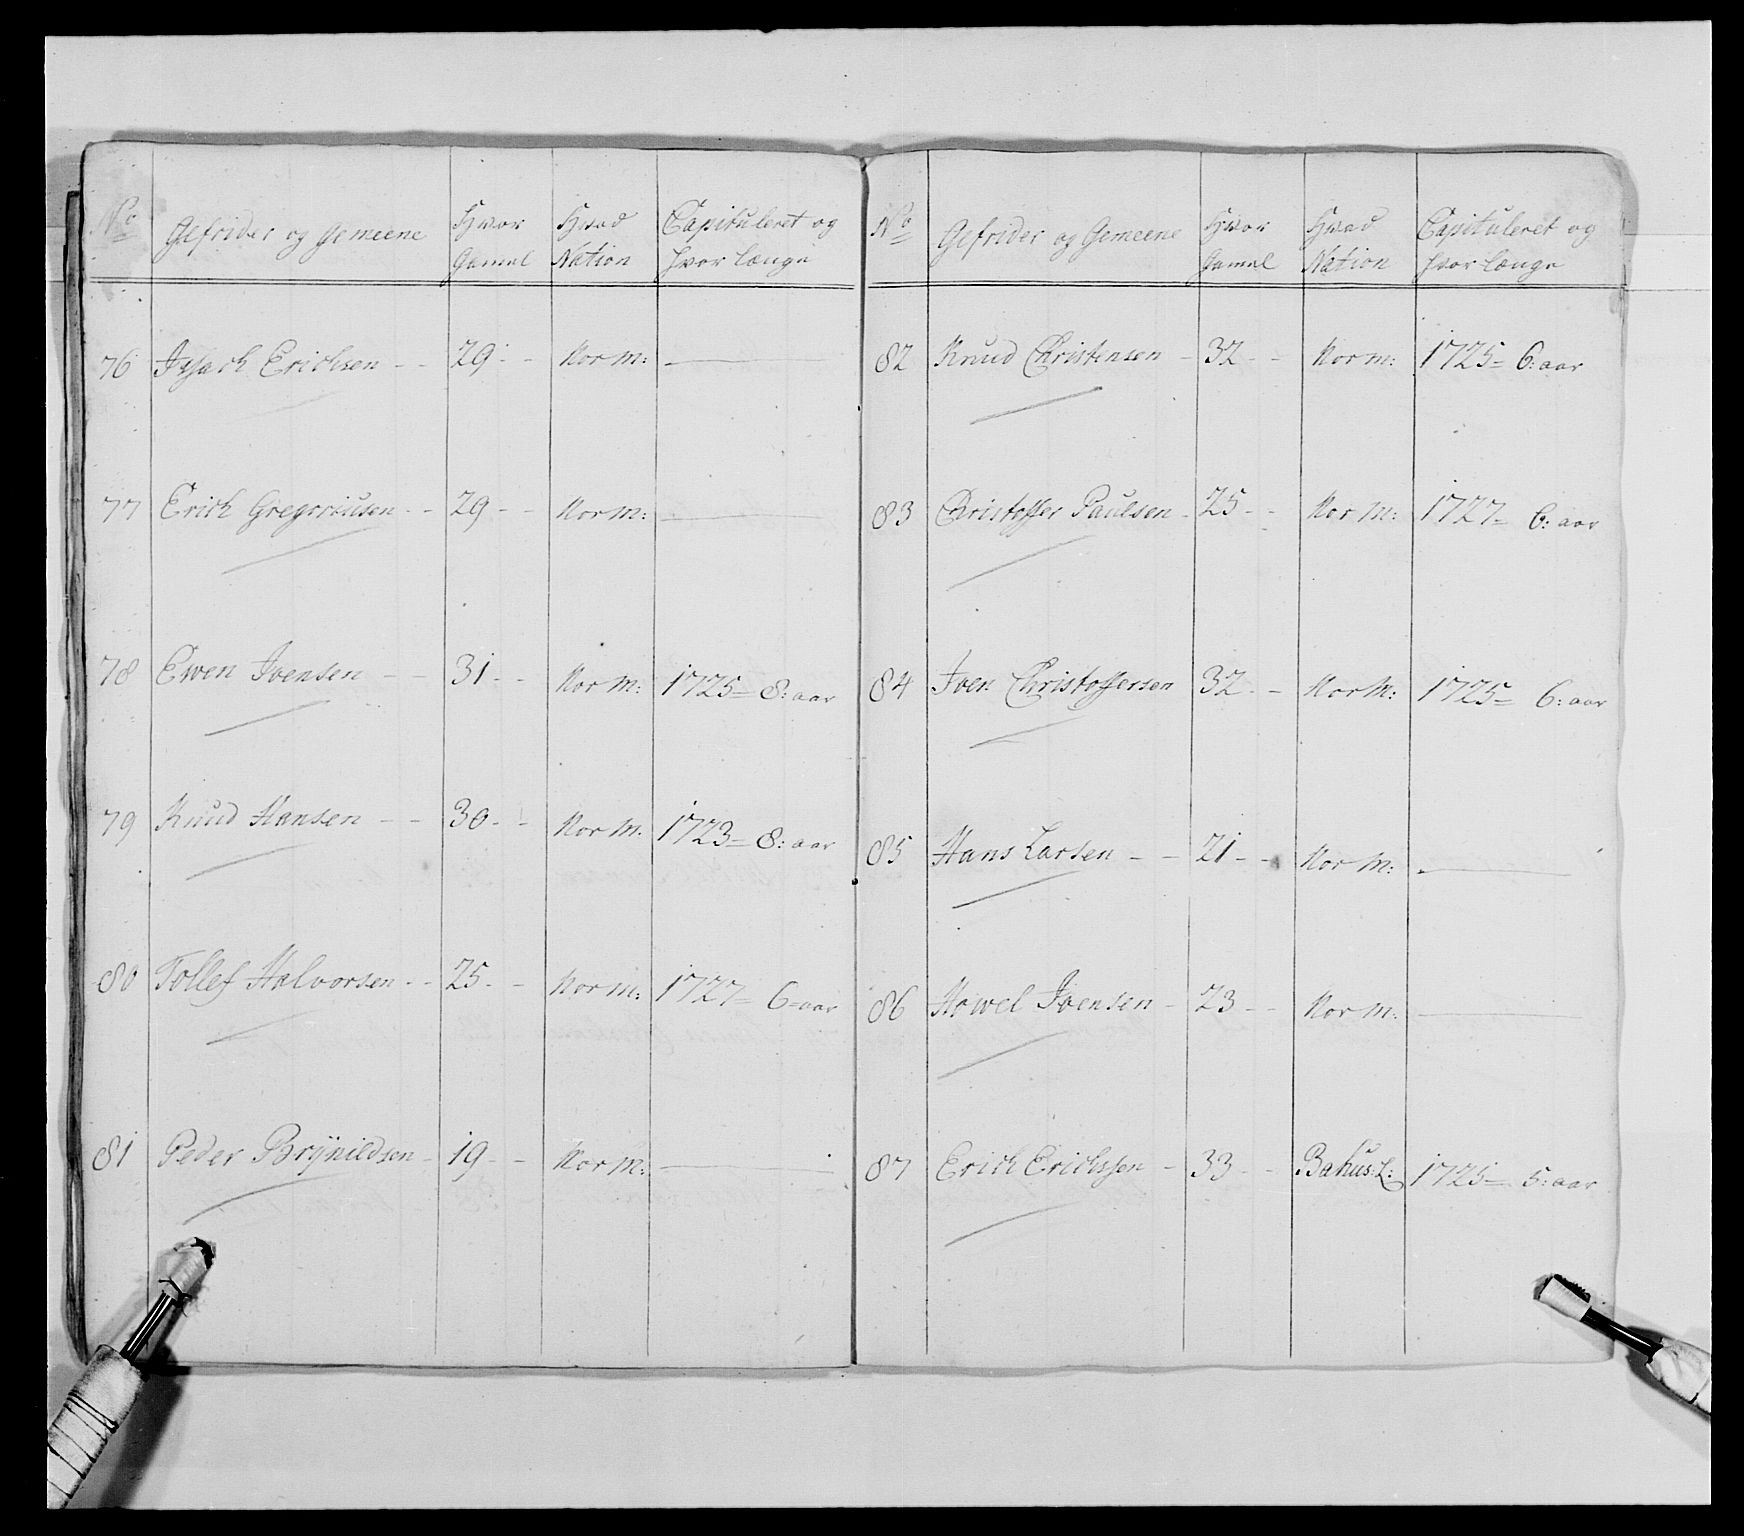 No Gefrider og Gemeene Hvor Gamel Hvad Nation Capituleret og hvor længe
76 Issach Erichsen - - 29 - - Norm: —
77 Erich Gregoriusen - - 29 - - Norm: —
78 Ewen Ivensen - - 31 - - Norm: 1725 = 8: aar
79 Knud Hansen - - 30 - - Norm. 1723 = 8: aar
80 Tollef Halvorsen - - 25 - - Norm: 1727 = 6 = aar
81 Peder Brÿnildsen - 19 - - Norm: —
No Gefrider og Gemeene Hvor Gamel Hvad Nation Capituleret og hvor længe
82 Knud Christensen - 32 - - Norm: 1725 = 6: aar
83 Christoffer Paulsen - 25 - - Norm: 1727 = 6: aar
84 Iven Christoffersen 32 - - Norm: 1725 = 6: aar
85 Hans Larsen - - 21 - - Norm: —
86 Howel Ivensen - 23 - - Norm: —
87 Erich Erichssen - 33 - - Bahus: L: 1725 = 5: aar